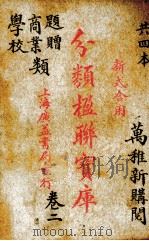 共四本
萬雅新購閱
新式合用
分類楹聯寶庫
卷二
上海廣益書局發行
題贈類
商業
學校